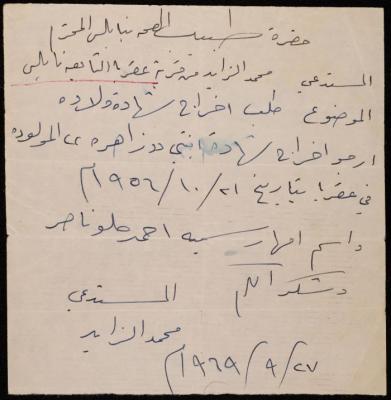 حضرة طبيب الصحه بنابلس المحترم
المستدعي محمد الزايد من قرية عقربا التابعه نابلس
الموضوع طلب اخراج شهادة ولاده
ارجو اخراج شهادة ابنتي زاهره المولوده
في عقربا بتاريخ ٢١/١٠/١٩٥٦م
واسم امها رسميه احمد حلو ناصر
وشكرا لكم
المستدعي
محمد الزايد
٢٧/٩/١٩٦٩م